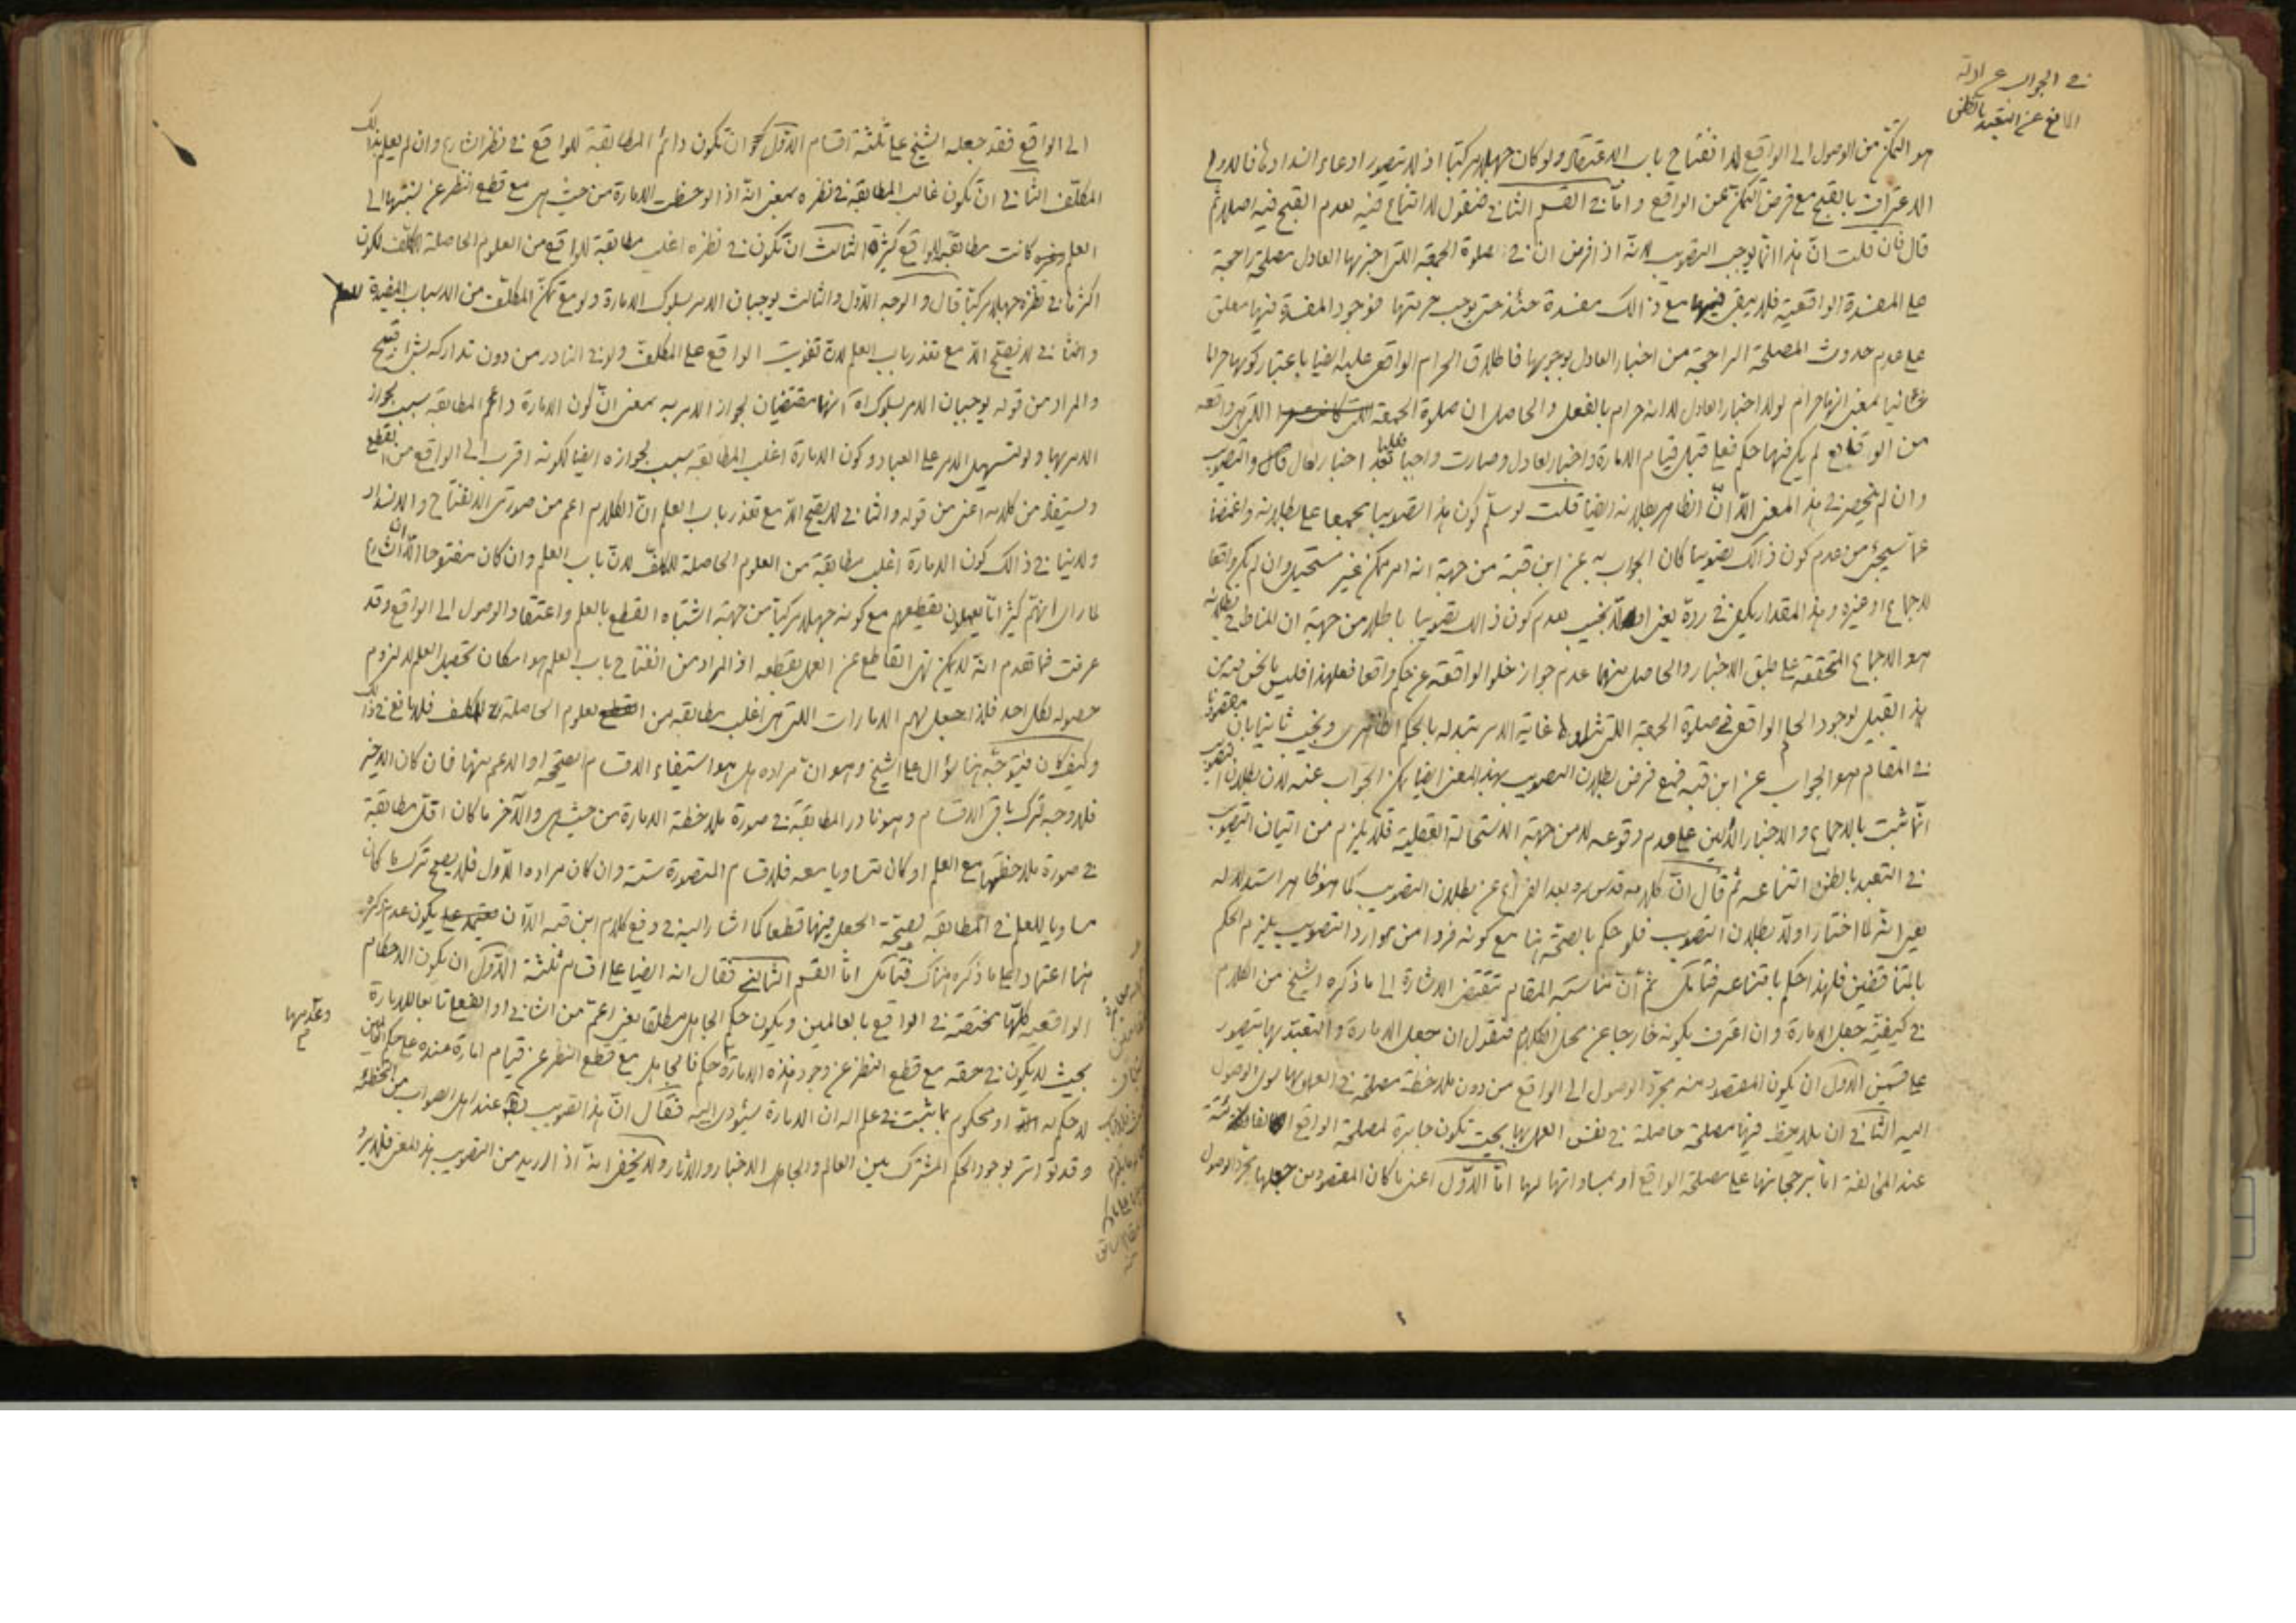 في الجواب عن ادلة
المانع عن التعبد بالظن
هو التمكن من الوصول الى الواقع لا انفتاح باب الاعتقاد ولو كان جهلا مركبا اذ لا يتصور ادعاء انسدادها فالاولى
الاعتراف بالقبح مع فرض التمكن عن الواقع واما في القسم الثاني فنقول لا امتناع فيه بعدم القبح فيه اصلا ثم
قال فان قلت ان هذا انما يوجب التصويب لانه اذا فرض ان في صلوة الجمعة اللتي اخبر بها العادل مصلحة راجحة
على المفسدة الواقعية فلا يبقى فيها مع ذالك مفسدة حتى يوجب حرمتها فوجود المفسدة فيها معلق
على عدم حدوث المصلحة الراجحة من اخبار العادل بوجوبها فاطلاق الحرام الواقعي عليه ايضا باعتبار كونها حراما
شانيا بمعنى انها حرام لولا اخبار العادل لا انه حرام بالفعل والحاصل ان صلوة الجمعة اللتي هي واقعة
من الوقايع لم يكن فيها حكم فعلي قبل قيام الامارة واخبار العادل وصارت واجبا فعليا بعد اخبار العادل والتصويب
وان لم ينحصر في هذ المعنى الا ان الظاهر بطلانه ايضا قلت لو سلم كون هذ التصويب مجمعا على بطلانه واغمضنا
عما سيجيئ من عدم كون ذالك تصويبا كان الجواب به عن ابن قبة من جهة انه امر ممكن غير مستحيل وان لم يكن واقعا
للاجماع او غيره وهذ المقدار يكفي في رده يعني اولا نجيب بعدم كون ذالك تصويبا باطلا من جهة ان المناط في بطلانه
هو الاجماع المتحققة على طبق الاخبار والحاصل منهما عدم جواز خلو الواقعة عن حكم واقعا فعلى هذا فليس ما نحن فيه من
هذ القبيل لوجود الحكم الواقعي في صلوة الجمعة اللتي غاية الامر تبدله بالحكم الظاهري ونجيب ثانيا بان مقصودنا
في المقام هو الجواب عن ابن قبه فمع فرض بطلان التصويب بهذ المعنى ايضا يمكن الجواب عنه لان بطلان التصويب
انما ثبت بالاجماع والاخبار الدالين على عدم وقوعه لا من جهة الاستحالة العقلية فلا يلزم من اتيان التصويب
في التعبد بالظن امتناعه ثم قال ان كلامه قدس سره بعد الفراغ عن بطلان التصويب كما هو ظاهر استدلاله
يعني اشرنا اختار اولا بطلان التصويب فلو حكم بالصحة هنا مع كونه فردا من موارد التصويب يلزم الحكم
بالمتناقضين فلهذ احكم بامتناعه فتامل ثم ان مناسبة المقام تقتضي الاشارة الى ما ذكره الشيخ من الكلام
في كيفية جعل الامارة وان اعترف بكونه خارجا عن محل الكلام فنقول ان جعل الامارة والتعبد بها يتصور
على قسمين الاول ان يكون المقصود منه مجرد الوصول الى الواقع من دون ملاحظة مصلحة في العمل بها سوى الوصول
اليه الثاني ان يلاحظ فيها مصلحة حاصلة في نفس العمل بها بحيث تكون جابرة لمصلحة الواقع الفائتة
عند المخالفة اما برجحانها على مصلحة الواقع او بمساواتها لها اما الاول اعني ما كان المقصود من جعلها مجرد الوصول
الى الواقع فقد جعله الشيخ على ثلثة اقسام الاول ان تكون دائم المطابقة للواقع في نظر الشارع وان لم يعلم بذالك
المكلف الثاني ان تكون غالب المطابقة في نظره بمعنى انه اذا لوحظت الامارة من حيث هي مع قطع النظر عن نسبتها الى
العلم كانت مطابقته للواقع كثيرة الثالث ان تكون في نظره اغلب مطابقة للواقع من العلوم الحاصلة للمكلف لكون
اكثرها في نظره جهلا مركبا قال والوجه الاول والثالث يوجبان الامر بسلوك الامارة ولو مع تمكن المكلف من الاسباب المفيدة للعلم
والثاني لا يصح الا مع تعذر باب العلم لان تفويت الواقع على المكلف ولو في النادر من دون تداركه بشيئ قبيح
والمراد من قوله يوجبان الامر بسلوك اه انهما مقتضيان لجواز الامر به بمعنى ان كون الامارة دائم المطابقة سبب لجواز
الامر بها ولو لتسهيل الامر على العباد وكون الامارة اغلب المطابقة سبب لجوازه ايضا لكونه اقرب الى الواقع من القطع
ويستفاد من كلامه اعني من قوله والثاني لا يصح الا مع تعذر باب العلم ان الكلام اعم من صورتي الانفتاح والانسداد
ولا ينافي ذالك كون الامارة اغلب مطابقة من العلوم الحاصلة للمكلف لان باب العلم وان كان مفتوحا الا ان الشارع
لما راى انهم كثيرا ما يعملون بقطعهم مع كونه جهلا مركبا من جهة اشتباه القطع بالعلم واعتقاد الوصول الى الواقع وقد
عرفت فيما تقدم انه لا يمكن نهى القاطع عن العمل بقطعه اذ المراد من انفتاح باب العلم هو امكان تحصيل العلم لا لزوم
حصوله لكل احد فلذا جعل لهم الامارات اللتي هي اغلب مطابقة من العلوم الحاصلة للمكلف فلا مانع في ذالك
وكيف كان فيتوجه هنا سؤال على الشيخ وهو ان مراده هل هو استيفاء الاقسام الصحيحة او الاعم منها فان كان الاخير
فلا وجه لترك باقي الاقسام وهو نادر المطابقة في صورة ملاحظة الامارة من حيث هي والآخر ما كان اقل مطابقة
في صورة ملاحظتها مع العلم او كان متساويا معه فالاقسام المتصورة ستة وان كان مراده الاول فلا يصح ترك ما كان
مساويا للعلم في المطابقة لصحة الجعل فيها قطعا كما اشار اليه في دفع كلام ابن قبه الا ان يكون عدم ذكره
هنا اعتمادا على ما ذكره هناك فتامل اما القسم الثاني فقال انه ايضا على اقسام ثلثة الاول ان يكون الاحكام
الواقعية كلها مختصة في الواقع بالعالمين ويكون حكم الجاهل مطلقا يعني اعم من الشاني او الفعلي تابعا للامارة
وعدمها
بحيث لا يكون في حقه مع قطع النظر عن وجود هذه الامارة حكم فالجاهل مع قطع النظر عن قيام امارة عنده على حكم العالمين
لا حكم له او محكوم بما يثبت في علم الله ان الامارة سيؤدى اليه فقال ان هذ التصويب عند اهل الصواب من المخطئة
وقد تواتر بوجود الحكم المشترك بين العالم والجاهل الاخبار والاثار ولا يخفى انه اذا اريد من التصويب هذ المعنى فلا يرد